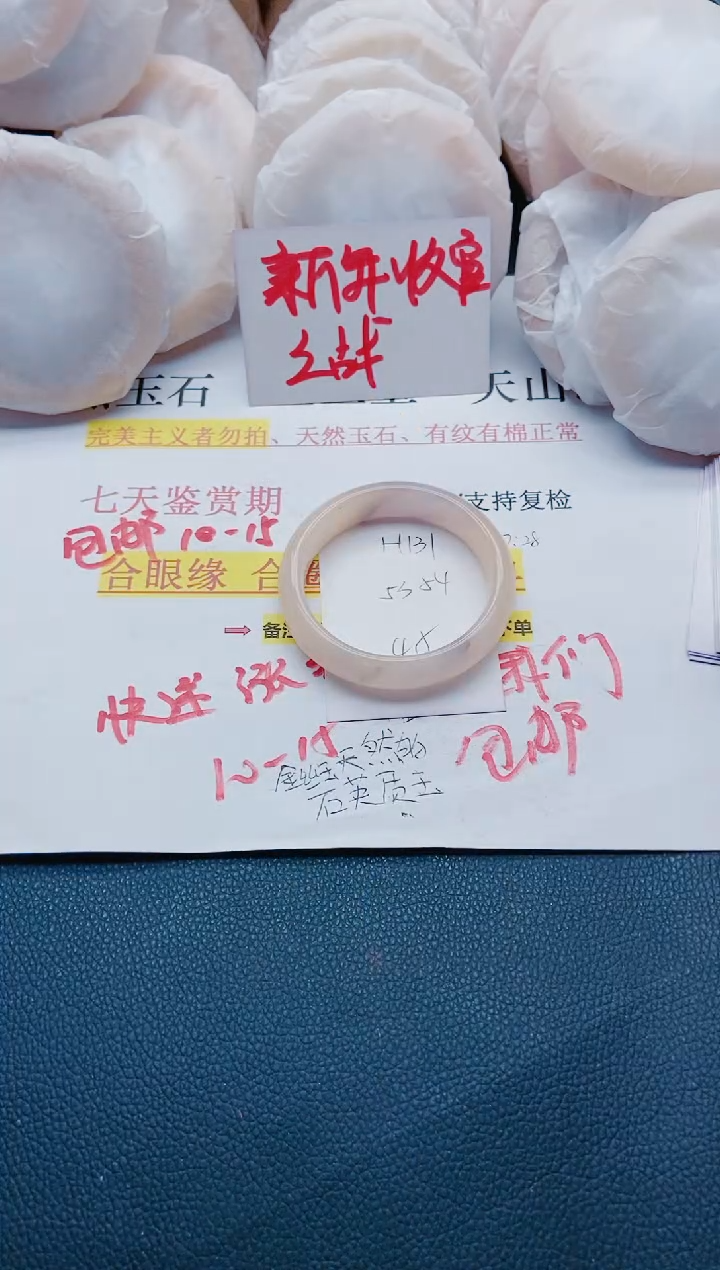 新年收官
之战
玉石
天山
完美主义者勿拍、天然玉石、有纹有棉正常
七天鉴赏期
支持复检
包邮 10-15
H131
合眼缘 合圈
备注
单
快递 涨
我们
10-15
包邮
金丝玉天然的
石英质玉